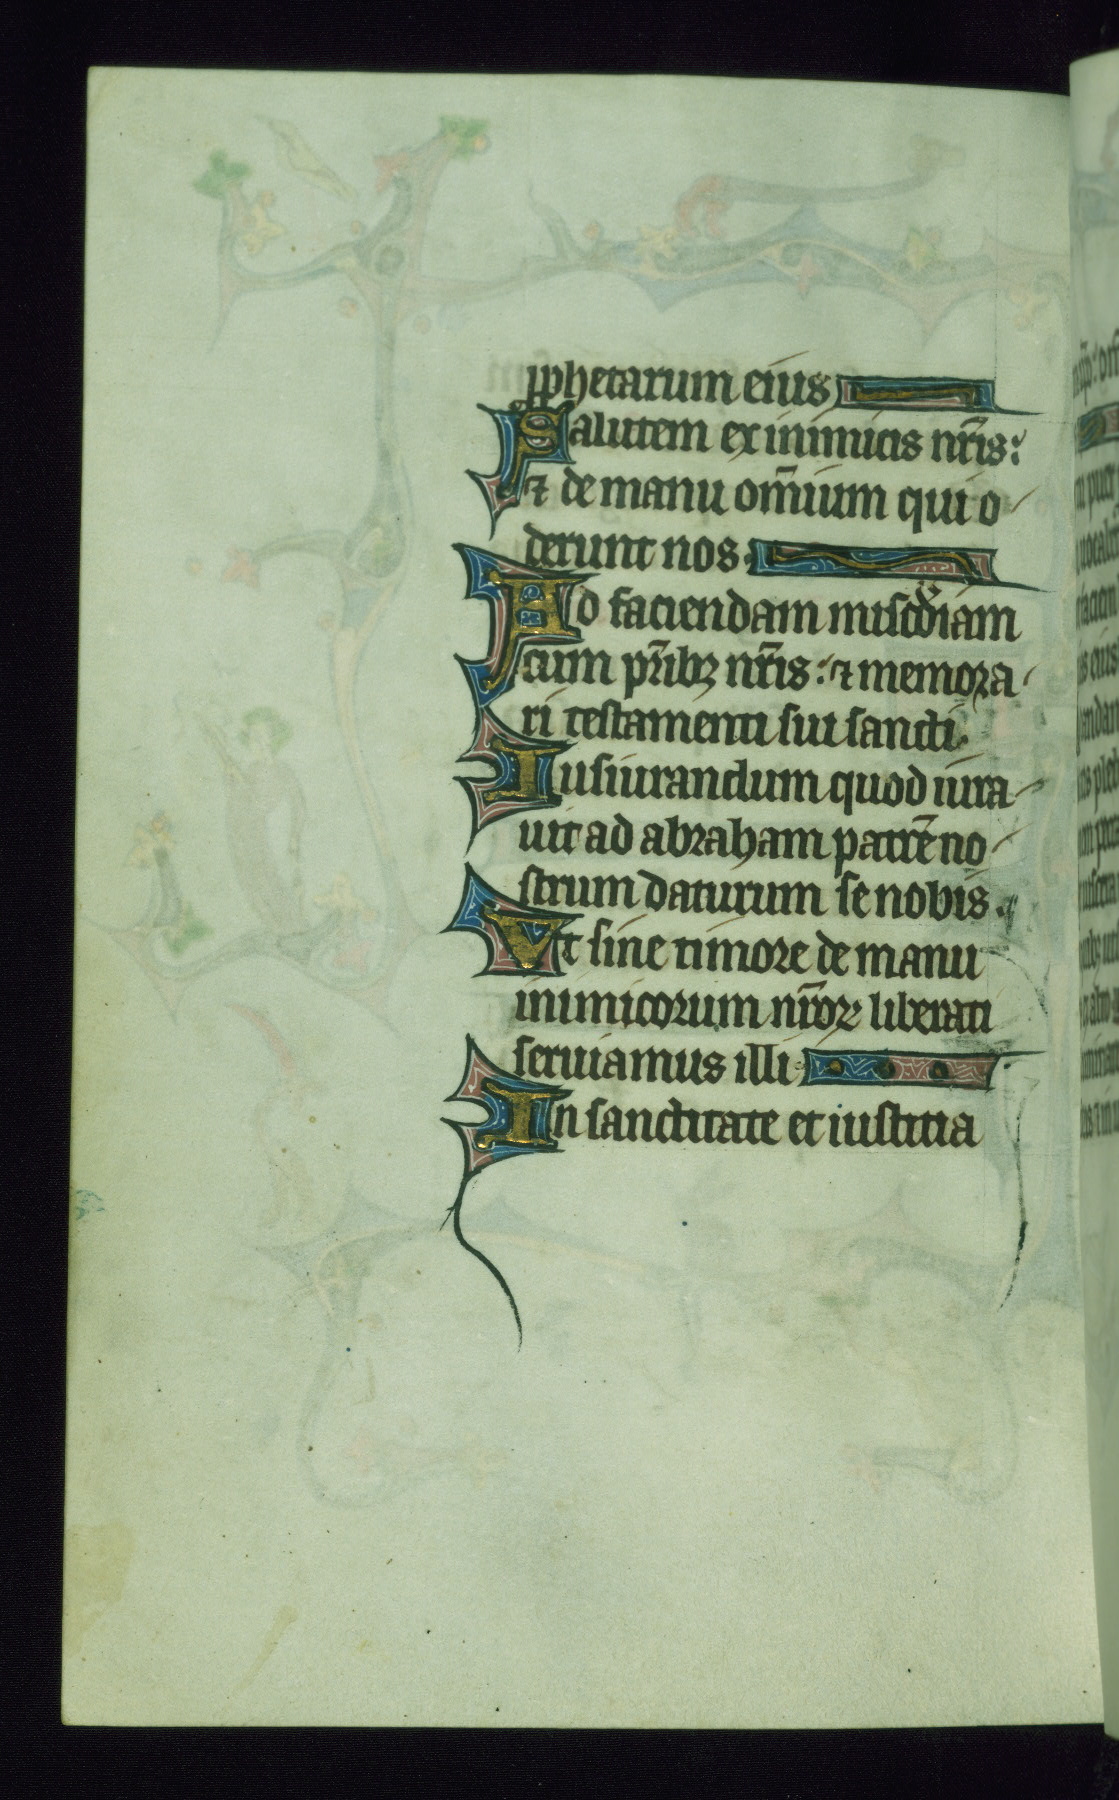 ꝓphetarum eius
Salutem ex inimicis nr̄is:
⁊ de manu om̄ium qui o
derunt nos.
Ad faciendam misc̄diam
cum pr̄ibꝫ nr̄is: ⁊ memora
ri testamenti sui sancti.
Iusiurandum quod iura
uit ad abraham patrē no
strum daturum se nobis.
Vt sine timore de manu
inimicorum nr̄oꝝ liberati
seruiamus illi
In sanctitate et iustitia